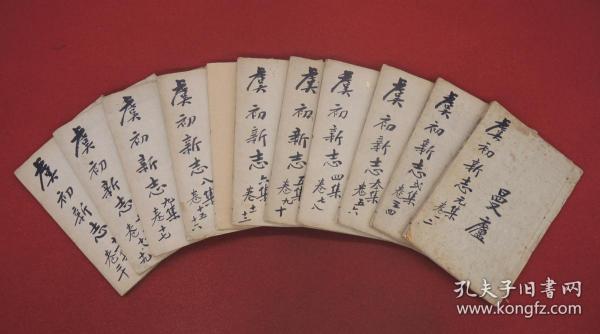 曼廬
虞初新志元集
卷一二
虞初新志弍集
卷三四
虞初新志叁集
卷五六
虞初新志四集
卷七八
虞初新志五集
卷九十
虞初新志六集
卷十一十二
虞初新志八集
卷十五十六
虞初新志九集
卷十七
虞初新志
虞初新志
孔夫子旧书网
www.kongfz.com